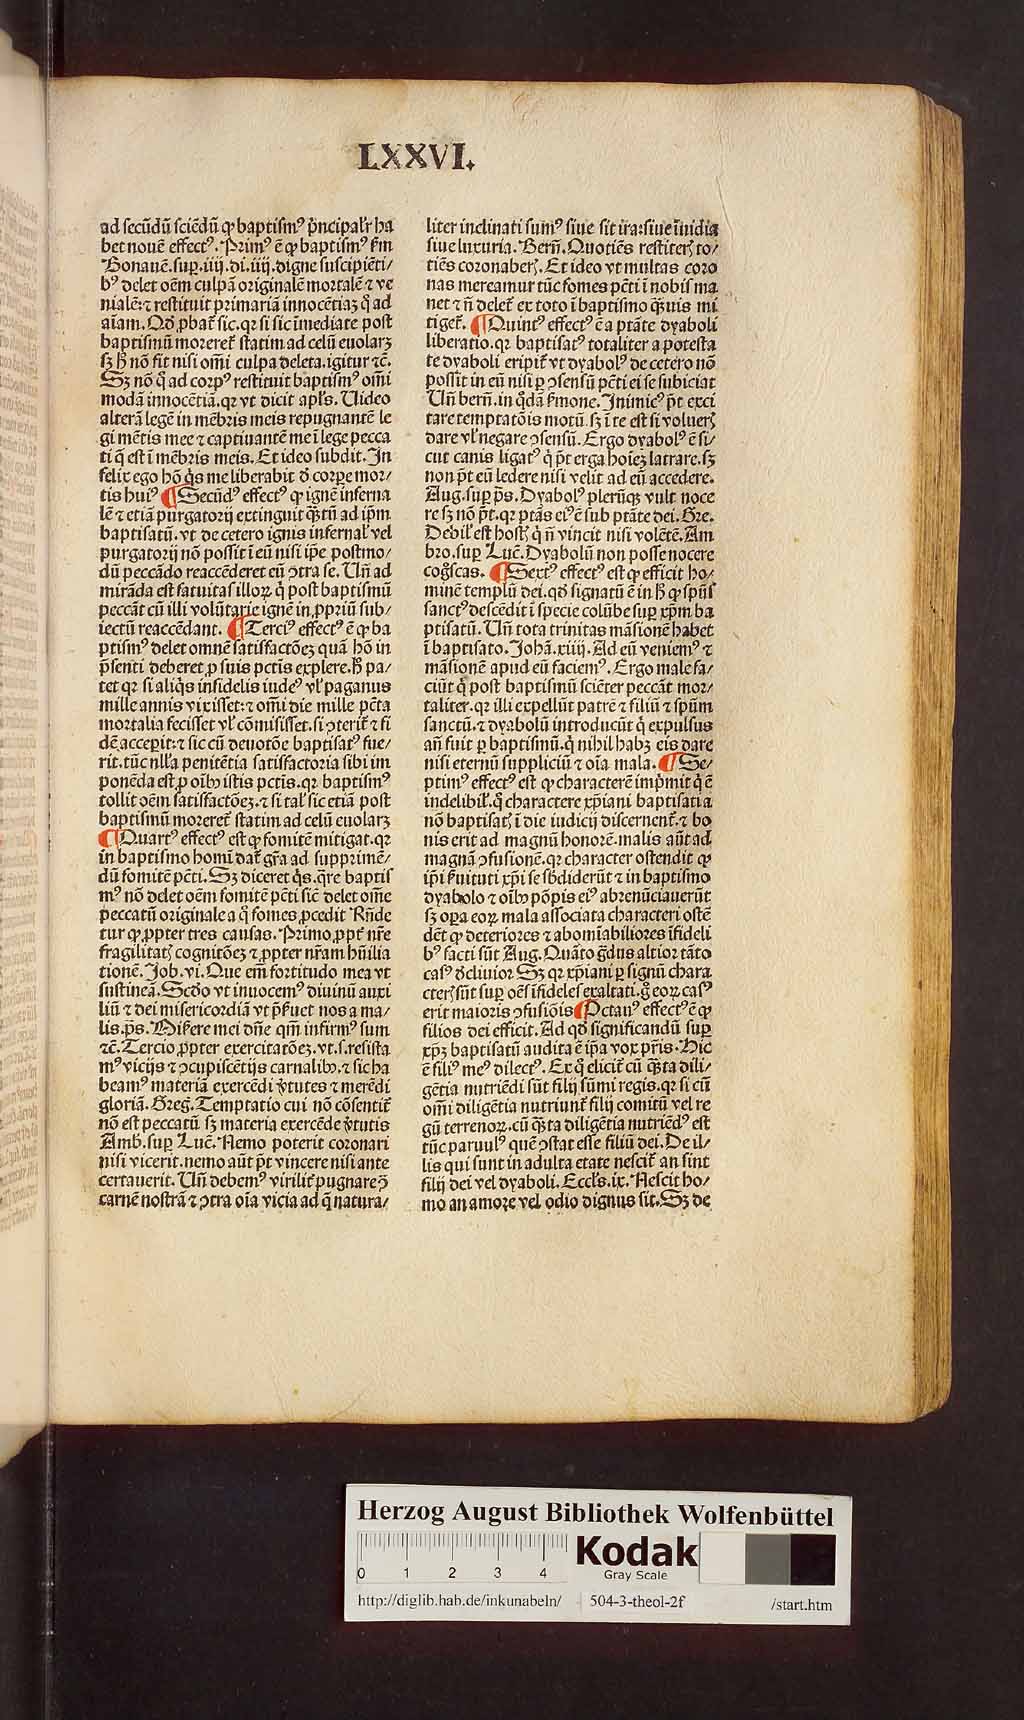 LXXVI.
ad secūdū sciēdū ꝙ baptismꝰ p̄ncipalr̄ ha
bet nouē effectꝰ. Primꝰ ē ꝙ baptismꝰ fm̄
Bonauē. sup. iiij. di. iiij. digne suscipiēti/
bꝰ delet oēm culpā originalē mortalē ⁊ ve
nialē: ⁊ restituit primariā innocētiaꝫ q̄ ad
aīam. Qd̓ ꝓbat̄ sic. qꝛ si sic īmediate post
baptismū moreret̄ statim ad celū euolarꝫ
sꝫ h̄ nō fit nisi om̄i culpa deleta. igitur ⁊c̄.
Sꝫ nō q̄ ad corpꝰ restituit baptismꝰ om̄i
modā innocētiā. qꝛ vt dicit apl̄s. Uideo
alterā legē in mēbris meis repugnantē le
gi mētis mee ⁊ captiuantē me ī lege pecca
ti q̄ est ī mēbris meis. Et ideo subdit. In
felix ego hō q̄s me liberabit d̓ corpe mor/
tis huiꝰ ¶ Secūdꝰ effectꝰ ꝙ ignē inferna
lē ⁊ etiā purgatorij extinguit q̄ꝫtū ad ip̄m
baptisatū. vt de cetero ignis infernal̓ vel
purgatorij nō possit ī eū nisi ip̄e postmo/
dū peccādo reaccēderet eū ꝯtra se. Un̄ ad
mirāda est fatuitas illoꝝ q̄ post baptismū
peccāt cū illi volūtarie ignē in ꝓpriū sub/
iectū reaccēdant. ¶ Terciꝰ effectꝰ ē ꝙ ba
ptismꝰ delet omnē satisfactōeꝫ quā hō in
p̄senti deberet ꝓ suis pctis explere. h̄ pa/
tet qꝛ si aliq̄s infidelis iudeꝰ vl̓ paganus
mille annis vixisset: ⁊ om̄i die mille pctā
mortalia fecisset vl̓ cōmisisset. si ꝯterit̄ ⁊ fi
dē acceperit: ⁊ sic cū deuotōe baptisatꝰ fue/
rit. tūc nll̓a penitētia satisfactoria sibi im
ponēda est ꝓ oībꝫ istis pctis. qꝛ baptismꝰ
tollit oēm satisfactōeꝫ. ⁊ si tal̓ sic etiā post
baptismū moreret̄ statim ad celū euolarꝫ
¶ Quartꝰ effectꝰ est ꝙ fomitē mitigat. qꝛ
in baptismo homī dat̄ gr̄a ad supprimē/
dū fomitē pcti. Sꝫ diceret q̄s. q̄re baptis
mꝰ nō delet oēm fomitē pcti sic̄ delet om̄e
peccatū originale a q̄ fomes ꝓcedit Rn̄de
tur ꝙ ꝓpter tres causas. Primo ꝓpt̄ nr̄e
fragilitatꝭ cognitōeꝫ ⁊ ꝓpter nr̄am hūilia
tionē. Job. vi. Que em̄ fortitudo mea vt
sustineā. Scd̓o vt inuocemꝰ diuinū auxi
liū ⁊ dei misericordiā vt p̄seruet nos a ma/
lis. ps̄. Miserere mei dn̄e qm̄ infirmꝰ sum
⁊c̄. Tercio ꝓpter exercitatōeꝫ. vt. s. resista
mꝰ vicijs ⁊ ꝯcupiscētijs carnalibꝫ. ⁊ sic ha
beamꝰ materiā exercēdi v̓tutes ⁊ merēdi
gloriā. Greg̓. Temptatio cui nō cōsentit̄
nō est peccatū sꝫ materia exercēde v̓tutis
Amb. sup Luc̄. Nemo poterit coronari
nisi vicerit. nemo aūt pt̄ vincere nisi ante
certauerit. Un̄ debemꝰ virilit̓ pugnare ꝯ̄
carnē nostrā ⁊ ꝯtra oīa vicia ad q̄ natura/
liter inclinati sumꝰ siue sit ira: siue īuidia
siue luxuria. Bern̄. Quotiēs restiterꝭ to/
tiēs coronaberꝭ. Et ideo vt multas coro
nas mereamur tūc fomes pcti ī nobis ma
net ⁊ n̄ delet̄ ex toto ī baptismo q̄ꝫuis mi
tiget̄. ¶ Quintꝰ effectꝰ ē a ptāte dyaboli
liberatio. qꝛ baptisatꝰ totaliter a potesta
te dyaboli eripit̄ vt dyabolꝰ de cetero nō
possit in eū nisi ꝑ ꝯsensū pcti ei se subiciat
Un̄ bern̄. in q̄dā sermone. Inimicꝰ pt̄ exci
tare temptatōis motū sꝫ ī te est si volueris
dare vl̓ negare ꝯsensū. Ergo dyabolꝰ ē si/
cut canis ligatꝰ q̄ pt̄ erga hoīeꝫ latrare. sꝫ
non pt̄ eū ledere nisi velit ad eū accedere.
Aug. sup ps̄. Dyabolꝰ plerūqꝫ vult noce
re sꝫ nō pt̄. qꝛ ptās eiꝰ ē sub ptāte dei. Gre.
Debil̓ est hostꝭ q̄ n̄ vincit nisi volētē. Am
bro. sup Luc̄. Dyabolū non posse nocere
cog̓scas. ¶ Sextꝰ effectꝰ est ꝙ efficit ho/
minē templū dei. qd̓ signatū ē in h̄ ꝙ spūs
sanctꝰ descēdit ī specie colūbe sup xp̄m ba
ptisatū. Un̄ tota trinitas māsionē habet
ī baptisato. Johā. xiiij. Ad eū veniemꝰ ⁊
māsionē apud eū faciemꝰ. Ergo male fa/
ciūt q̄ post baptismū sciēter peccāt mor/
taliter. qꝛ illi expellūt patrē ⁊ filiū ⁊ spūm
sanctū. ⁊ dyabolū introducūt q̄ expulsus
an̄ fuit ꝑ baptismū. q̄ nihil habꝫ eis dare
nisi eternū suppliciū ⁊ oīa mala. ¶ Se/
ptimꝰ effectꝰ est ꝙ characterē imp̄mit q̄ ē
indelibil̓. q̄ charactere xp̄iani baptisati a
nō baptisatꝭ ī die iudicij discernent̄. ⁊ bo
nis erit ad magnū honorē. malis aūt ad
magnā ꝯfusionē. qꝛ character ostendit ꝙ
ip̄i s̓uituti xp̄i se sb̓diderūt ⁊ in baptismo
dyabolo ⁊ oībꝫ pōpis eiꝰ abrenūciauerūt
sꝫ oꝑa eoꝝ mala associata characteri ostē
dēt ꝙ deteriores ⁊ abomīabiliores īfideli
bꝰ facti sūt Aug. Quāto g̓dus altior tāto
casꝰ d̓cliuior Sꝫ qꝛ xp̄iani ꝑ signū chara
cterꝭ sūt sup oēs īfideles exaltati. g̓ eoꝝ casꝰ
erit maioris ꝯfusiōis ¶ Octauꝰ effectꝰ ē ꝙ
filios dei efficit. Ad qd̓ significandū sup
xp̄ꝫ baptisatū audita ē ip̄a vox pr̄is. Hic
ē filiꝰ meꝰ dilectꝰ. Ex q̄ elicit̄ cū q̄ꝫta dili/
gētia nutriēdi sūt filij sūmi regis. qꝛ si cū
om̄i diligētia nutriunt̄ filij comitū vel re
gū terrenoꝝ. cū q̄ꝫta diligētia nutriēdꝰ est
tūc paruulꝰ quē ꝯstat esse filiū dei. De il/
lis qui sunt in adulta etate nescit̄ an sint
filij dei vel dyaboli. Eccl̓s. ix. Nescit ho/
mo an amore vel odio dignus sit. Sꝫ de
Herzog August Bibliothek Wolfenbüttel
0 1 2 3 4
Kodak
Gray Scale
http://diglib.hab.de/inkunabeln/ 504-3-theol-2f /start.htm